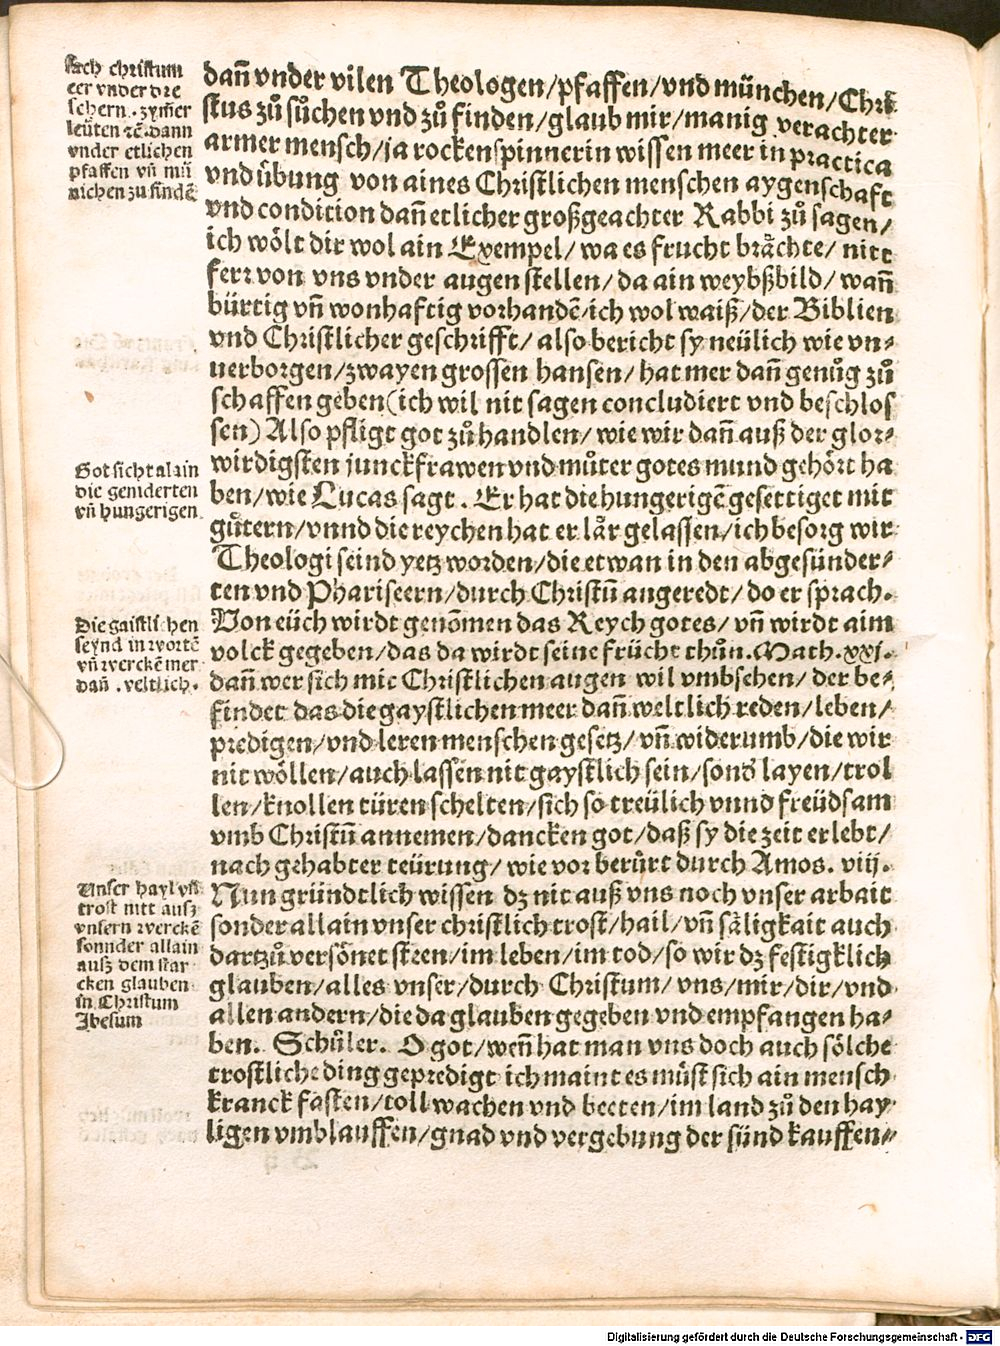 Such christum
eer vnder dre
schern. zym̃er
leüten ꝛc̃. dann
vnder etlichen
pfaffen vñ mü
nichen zu findẽ
dañ vnder vilen Theologen/pfaffen/vnd münchen/Chri
stus zů sůchen vnd zů finden/glaub mir/manig verachter
armer mensch/ja rockenspinnerin wissen meer in practica
vnd übung von aines Christlichen menschen aygenschaft
vnd condition dañ etlicher großgeachter Rabbi zů sagen/
ich wölt dir wol ain Exempel/wa es frucht brächte/nitt
ferr von vns vnder augen stellen/da ain weybßbild/wañ
bürtig vñ wonhaftig vorhandẽ/ich wol waiß/der Biblien
vnd Christlicher geschrifft/also bericht sy neülich wie vn-
uerborgen/zwayen grossen hansen/hat mer dañ genůg zů
schaffen geben(ich wil nit sagen concludiert vnd beschlos
sen) Also pfligt got zů handlen/wie wir dañ auß der glor-
wirdigsten junckfrawen vnd můter gotes mund gehört ha
ben/wie Lucas sagt. Er hat die hungerigẽ gesettiget mit
gůtern/vnnd die reychen hat er lär gelassen/ich besorg wir
Theologi seind yetz worden/die etwan in den abgesünder-
ten vnd Phariseern/durch Christũ angeredt/do er sprach.
Von eüch wirdt genõmen das Reych gotes/vñ wirdt aim
volck gegeben/das da wirdt seine frücht thůn. Math. xxj.
dañ wer sich mit Christlichen augen wil vmbsehen/der be-
findet das die gaystlichen meer dañ weltlich reden/leben/
predigen/vnd leren menschen gesetz/vñ widerumb/die wir
nit wöllen/auch lassen nit gaystlich sein/sond layen/trol
len/knollen türen schelten/sich so treülich vnnd freüdsam
vmb Christũ annemen/dancken got/daß sy die zeit erlebt/
nach gehabter teürung/wie vor berürt durch Amos. viij.
Nun gründtlich wissen dz nit auß vns noch vnser arbait
sonder allain vnser christlich trost/hail/vñ säligkait auch
dartzů versönet steen/im leben/im tod/so wir dz festigklich
glauben/alles vnser/durch Christum/vns/mir/dir/vnd
allen andern/die da glauben gegeben vnd empfangen ha-
ben. Schůler. O got/weñ hat man vns doch auch sölche
trostliche ding gepredigt ich maint es müst sich ain mensch
kranck fasten/toll wachen vnd beeten/im land zů den hay
ligen vmblauffen/gnad vnd vergebung der sünd kauffen-
Got sicht alain
die geniderten
vñ hungerigen
Die gaistlichen
seynd in wortẽ
vñ werckẽ mer
dañ weltlich.
Unser hayl vñ
trost nitt ausz
vnsern werckẽ
sonnder allain
ausz dem star
cken glauben
in Christum
Jhesum
Digitalisierung gefördert durch die Deutsche Forschungsgemeinschaft - DFG